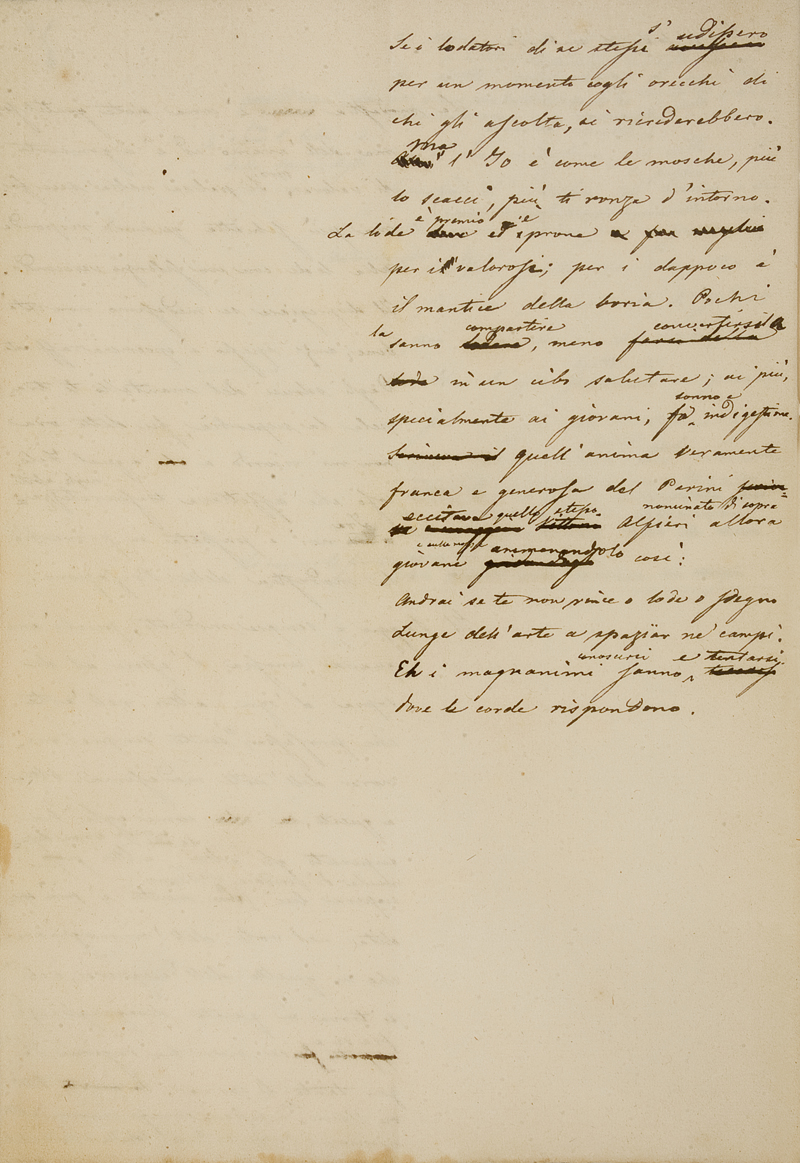 Se i lodatori di se stessi s' udissero
per un momento cogli orecchi di
chi gli ascolta, si ricrederebbero.
Ma l' Io è come le mosche, più
lo scacci, più ti ronza d'intorno.
La lode è premio ed è sprone
per i valorosi; per i dappoco è
il mantice della boria. Pochi
la sanno compartire, meno convertirsela
in un cibo salutare; ai più,
specialmente ai giovani, fa sonno e indigestione.
quell'anima veramente
franca e generosa del Parini
eccitava quello stesso Alfieri nominato di sopra allora
giovane animandolo così:
Andrai se te non vince o lode o sdegno
Lunge dell'arte a spaziar ne' campi.
Eh i magnanimi sanno conoscersi e tentarsi
dove le corde rispondono.